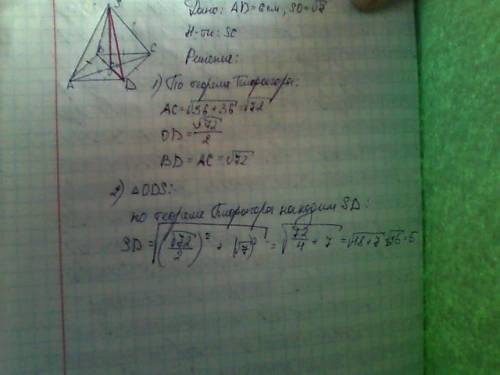 S
B
C
A
D
Дано: AD=6см, SO=√7
Н-ти: SC
Решение:
1) По теореме Пифагора:
AC=√36+36=√72
OD=√72/2
BD=AC=√72
2) △ODS:
по теореме Пифагора находим SD:
SD=√(√72/2)²+(√7)²=√72/4+7=√18+7=√25=5